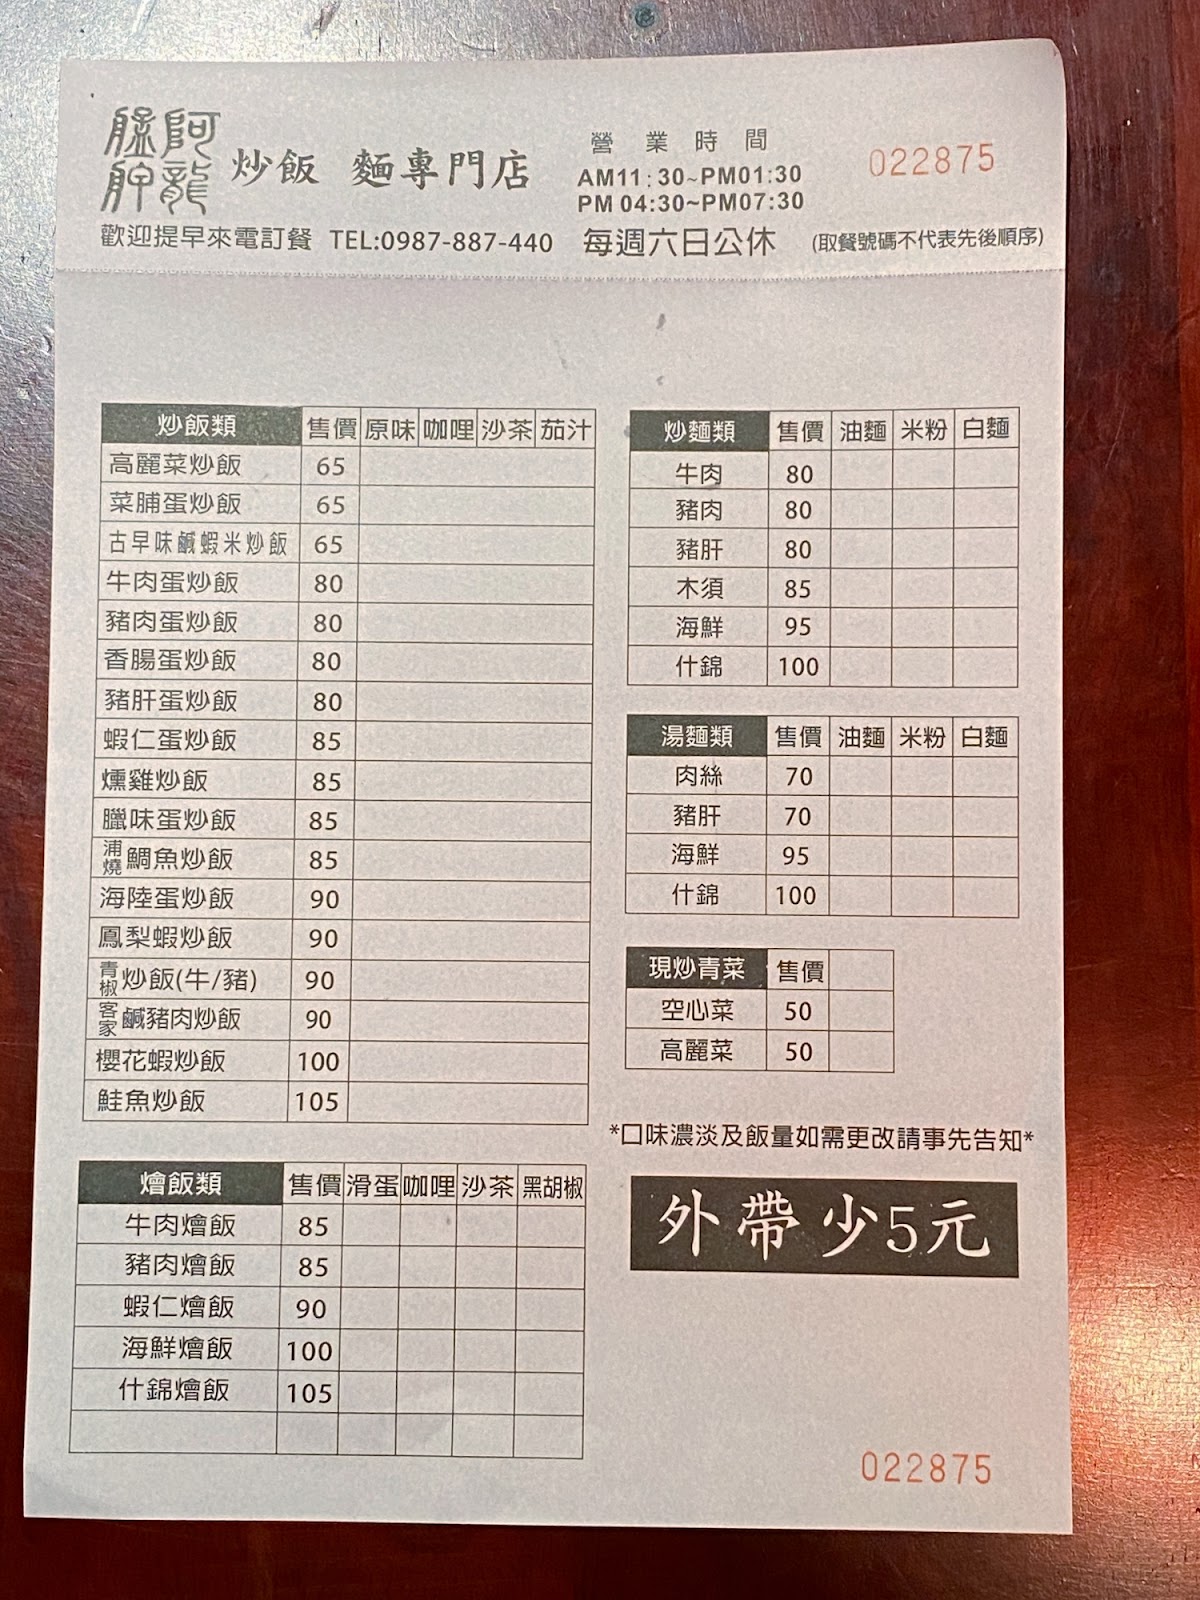 阿龍
艋舺
炒飯 麵專門店
營業時間
AM11:30~PM01:30
PM 04:30~PM07:30
022875
歡迎提早來電訂餐 TEL:0987-887-440 每週六日公休 (取餐號碼不代表先後順序)
炒飯類 售價 原味 咖哩 沙茶 茄汁
高麗菜炒飯 65
菜脯蛋炒飯 65
古早味鹹蝦米炒飯 65
牛肉蛋炒飯 80
豬肉蛋炒飯 80
香腸蛋炒飯 80
豬肝蛋炒飯 80
蝦仁蛋炒飯 85
燻雞炒飯 85
臘味蛋炒飯 85
浦燒鯛魚炒飯 85
海陸蛋炒飯 90
鳳梨蝦炒飯 90
青椒炒飯(牛/豬) 90
客家鹹豬肉炒飯 90
櫻花蝦炒飯 100
鮭魚炒飯 105
燴飯類 售價 滑蛋 咖哩 沙茶 黑胡椒
牛肉燴飯 85
豬肉燴飯 85
蝦仁燴飯 90
海鮮燴飯 100
什錦燴飯 105
炒麵類 售價 油麵 米粉 白麵
牛肉 80
豬肉 80
豬肝 80
木須 85
海鮮 95
什錦 100
湯麵類 售價 油麵 米粉 白麵
肉絲 70
豬肝 70
海鮮 95
什錦 100
現炒青菜 售價
空心菜 50
高麗菜 50
*口味濃淡及飯量如需更改請事先告知*
外帶少5元
022875